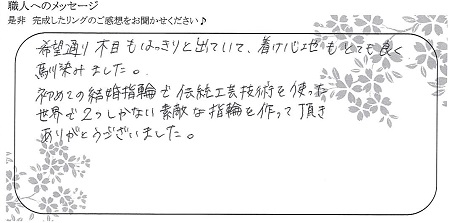 職人へのメッセージ
是非 完成したリングのご感想をお聞かせください♪
希望通り木目もはっきりと出ていて、着け心地もとても良く
馴染みました。
初めての結婚指輪で伝統工芸技術を使った
世界で2つしかない素敵な指輪を作って頂き
ありがとうございました。